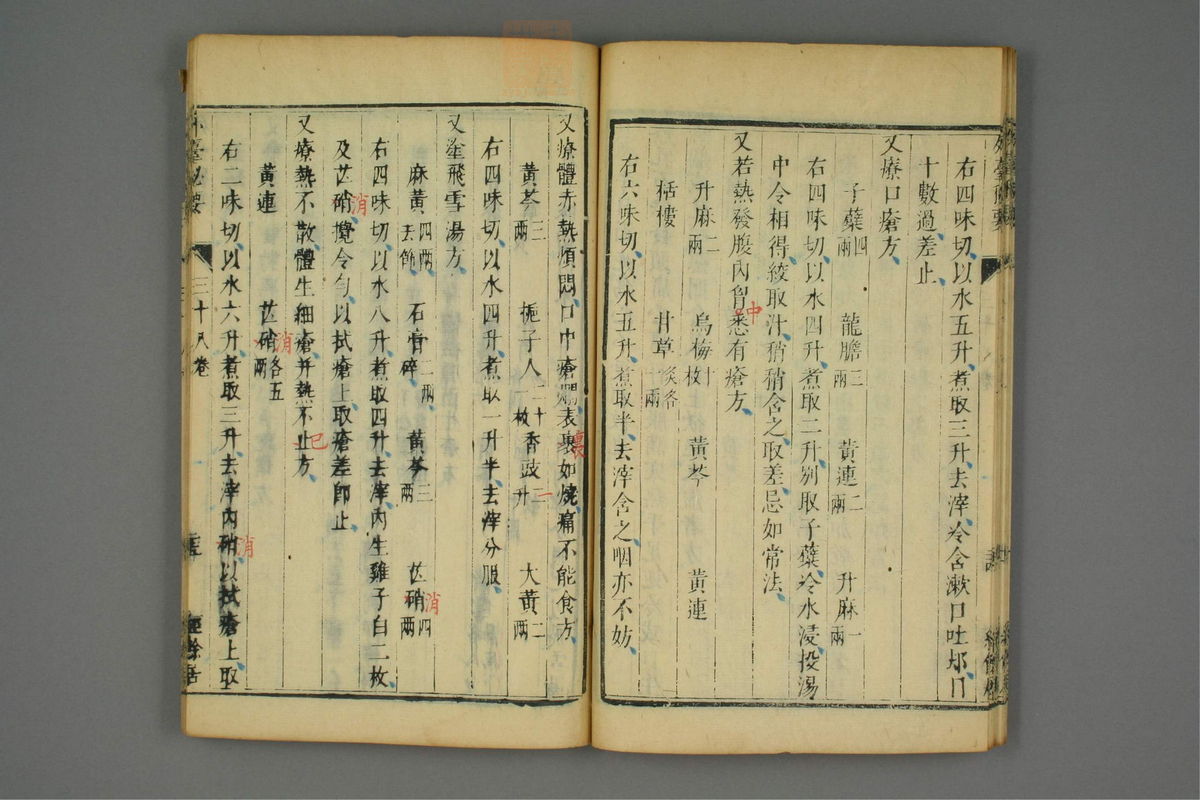 右四味切以水五升煮取三升去滓冷含漱口吐却日
十數過差止
又療口瘡方
子蘗四兩 龍膽三兩 黃連二兩 升麻一兩
右四味切以水四升煮取二升別取子蘗冷水浸投湯
中令相得絞取汁稍稍含之取差忌如常法
又若熱發腹內胷悉有瘡方
中
升麻二兩 烏梅十枚 黃芩 黃連
栝樓 甘草炙各一兩
右六味切以水五升煮取半去滓含之咽亦不妨
又療體赤熱煩悶口中瘡爛表裹如燒痛不能食方
裏
黃芩三兩 梔子人二十枚 香豉一升 大黃二兩
右四味切以水四升煮取一升半去滓分服
又塗飛雪湯方
麻黃四兩去節 石膏二兩碎 黃芩三兩 芒硝四兩
消
右四味切以水八升煮取四升去滓內生雞子白二枚
及芒硝攪令勻以拭瘡上取瘡差卽止
消
又療熱不散體生細瘡并熱不止方
已
黃連 芒硝各五兩
消
右二味切以水六升煮取三升去滓內硝以拭瘡上取
消
外臺祕要 三十八卷 經餘居